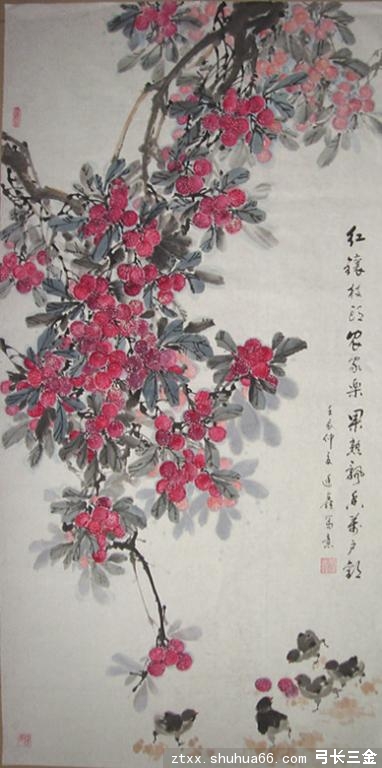 红镶枝头农家乐果熟飘香萬户
壬辰仲夏
ztxx.shuhua66.com 弓长三金